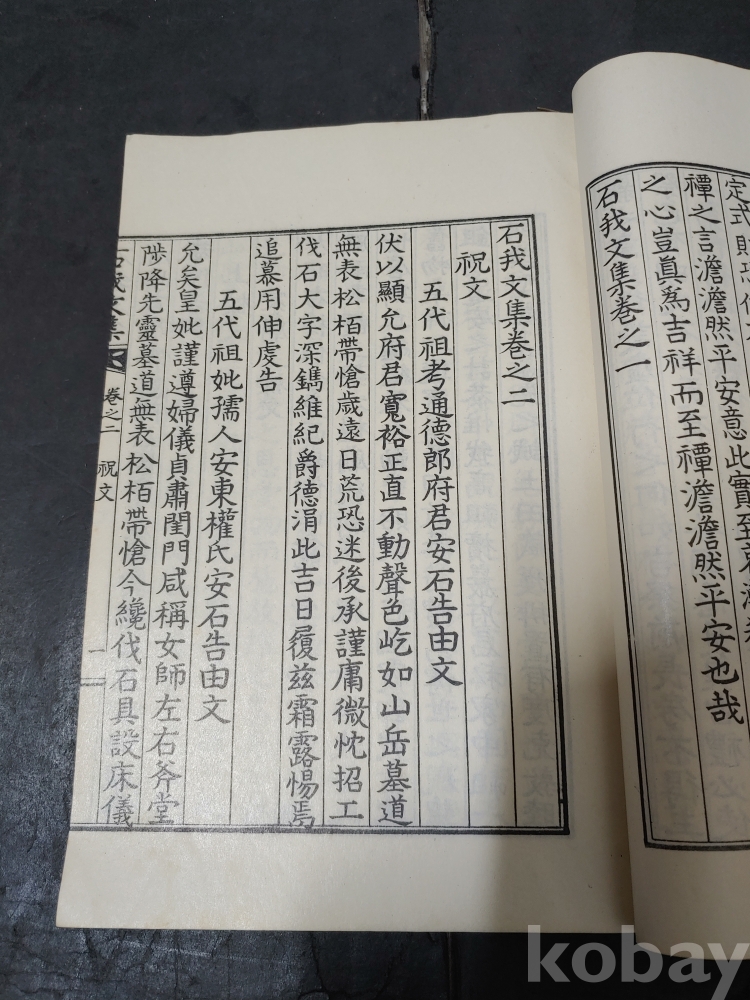 禫之言澹澹然平安意此實至
之心豈眞爲吉祥而至禫澹澹然平安也哉
石我文集卷之一
石我文集卷之二
祝文
五代祖考通德郎府君安石告由文
伏以顯允府君寬裕正直不動聲色屹如山岳墓道
無表松栢帶愴歲遠日荒恐迷後承謹庸微忱招工
伐石大字深鐫維紀爵德涓此吉日履茲霜露愓焉
追慕用伸虔告
五代祖妣孺人安東權氏安石告由文
允矣皇妣謹遵婦儀貞肅閨門咸稱女師左右斧堂
陟降先靈墓道無表松栢帶愴今纔伐石具設床儀
石我文集 卷之二 祝文 一
kobay